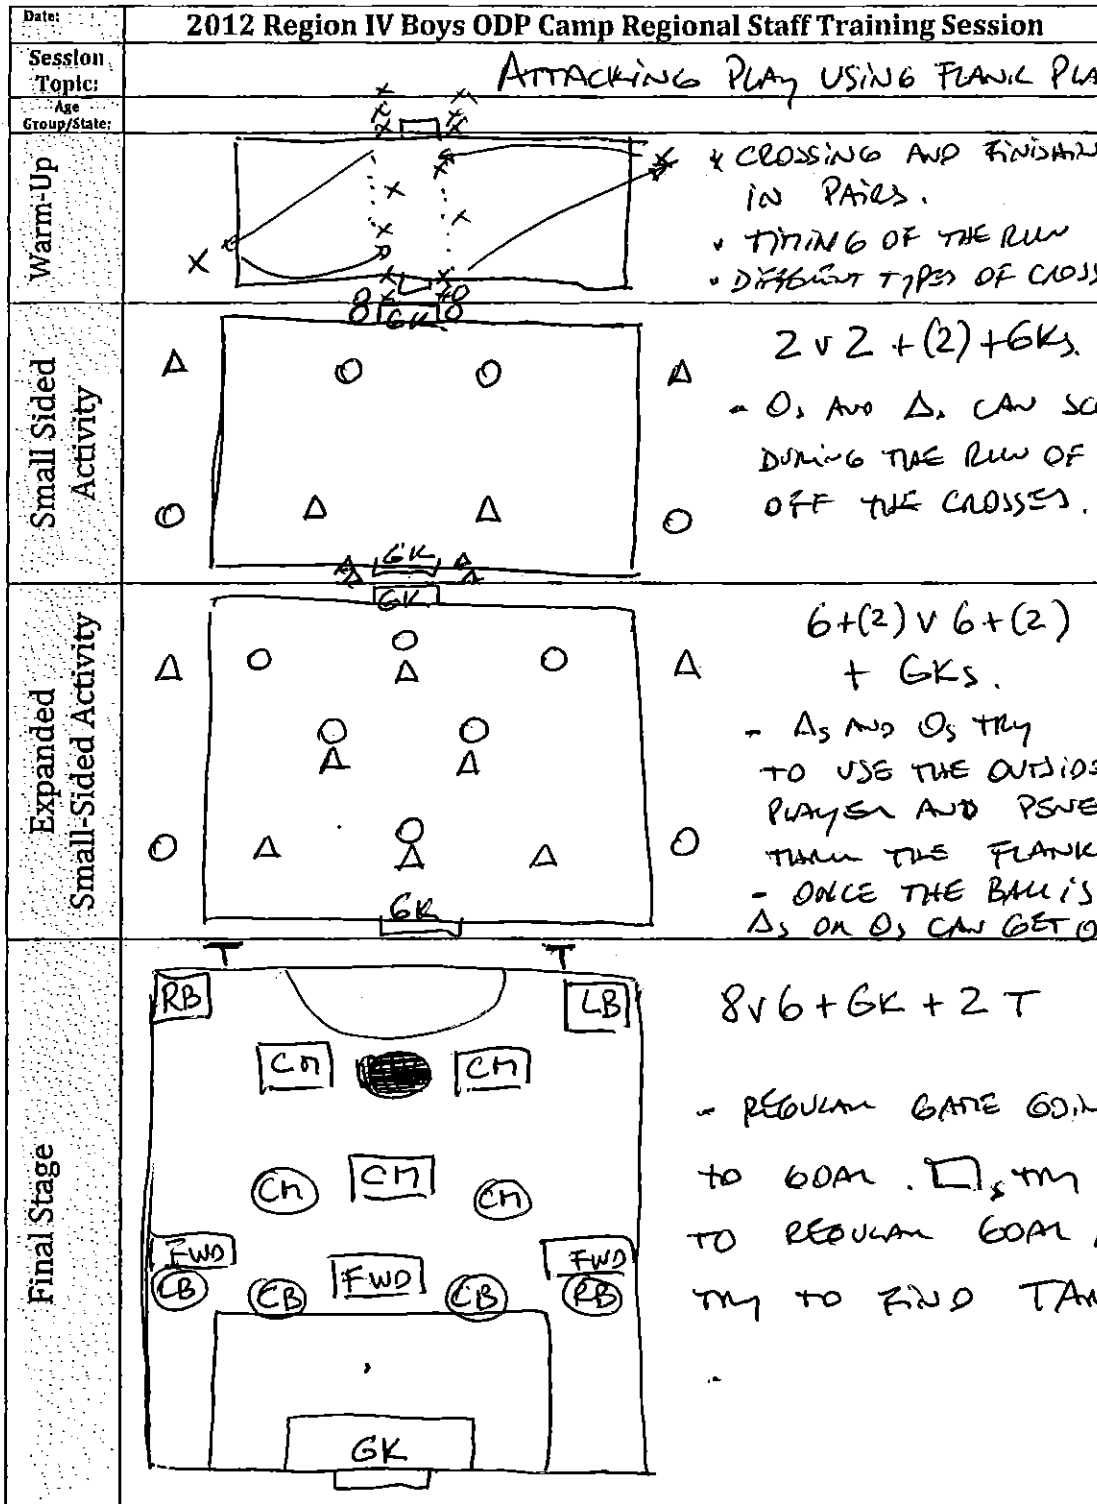 Date:
2012 Region IV Boys ODP Camp Regional Staff Training Session
Session
Topic:
ATTACKING PLAY USING FLANK PLA
Age
Group/State:
Warm-Up
* CROSSING AND FINISHIN
IN PAIRS.
• TIMING OF THE RUN
• DIFFERENT TYPES OF CROSS
X
8 GK 8
Small Sided
Activity
2 v 2 + (2) + GKs.
- Os AND Δs CAN SC
DURING THE RUN OF
OFF THE CROSSES.
GK
Expanded
Small-Sided Activity
GK
6+(2) v 6+(2)
+ GKs.
- Δs AND Os TRY
TO USE THE OUTSIDE
PLAYER AND PENE
THRU THE FLANK
- ONCE THE BALL IS
Δs OR Os CAN GET O
GK
Final Stage
T T
RB LB
CM CM
CM CM CM
FWD FWD FWD
CB CB CB RB
GK
8v6 + GK + 2 T
- REGULAR GAME GOIN
TO GOAL. □s TRY
TO REGULAR GOAL
TRY TO FIND TAR